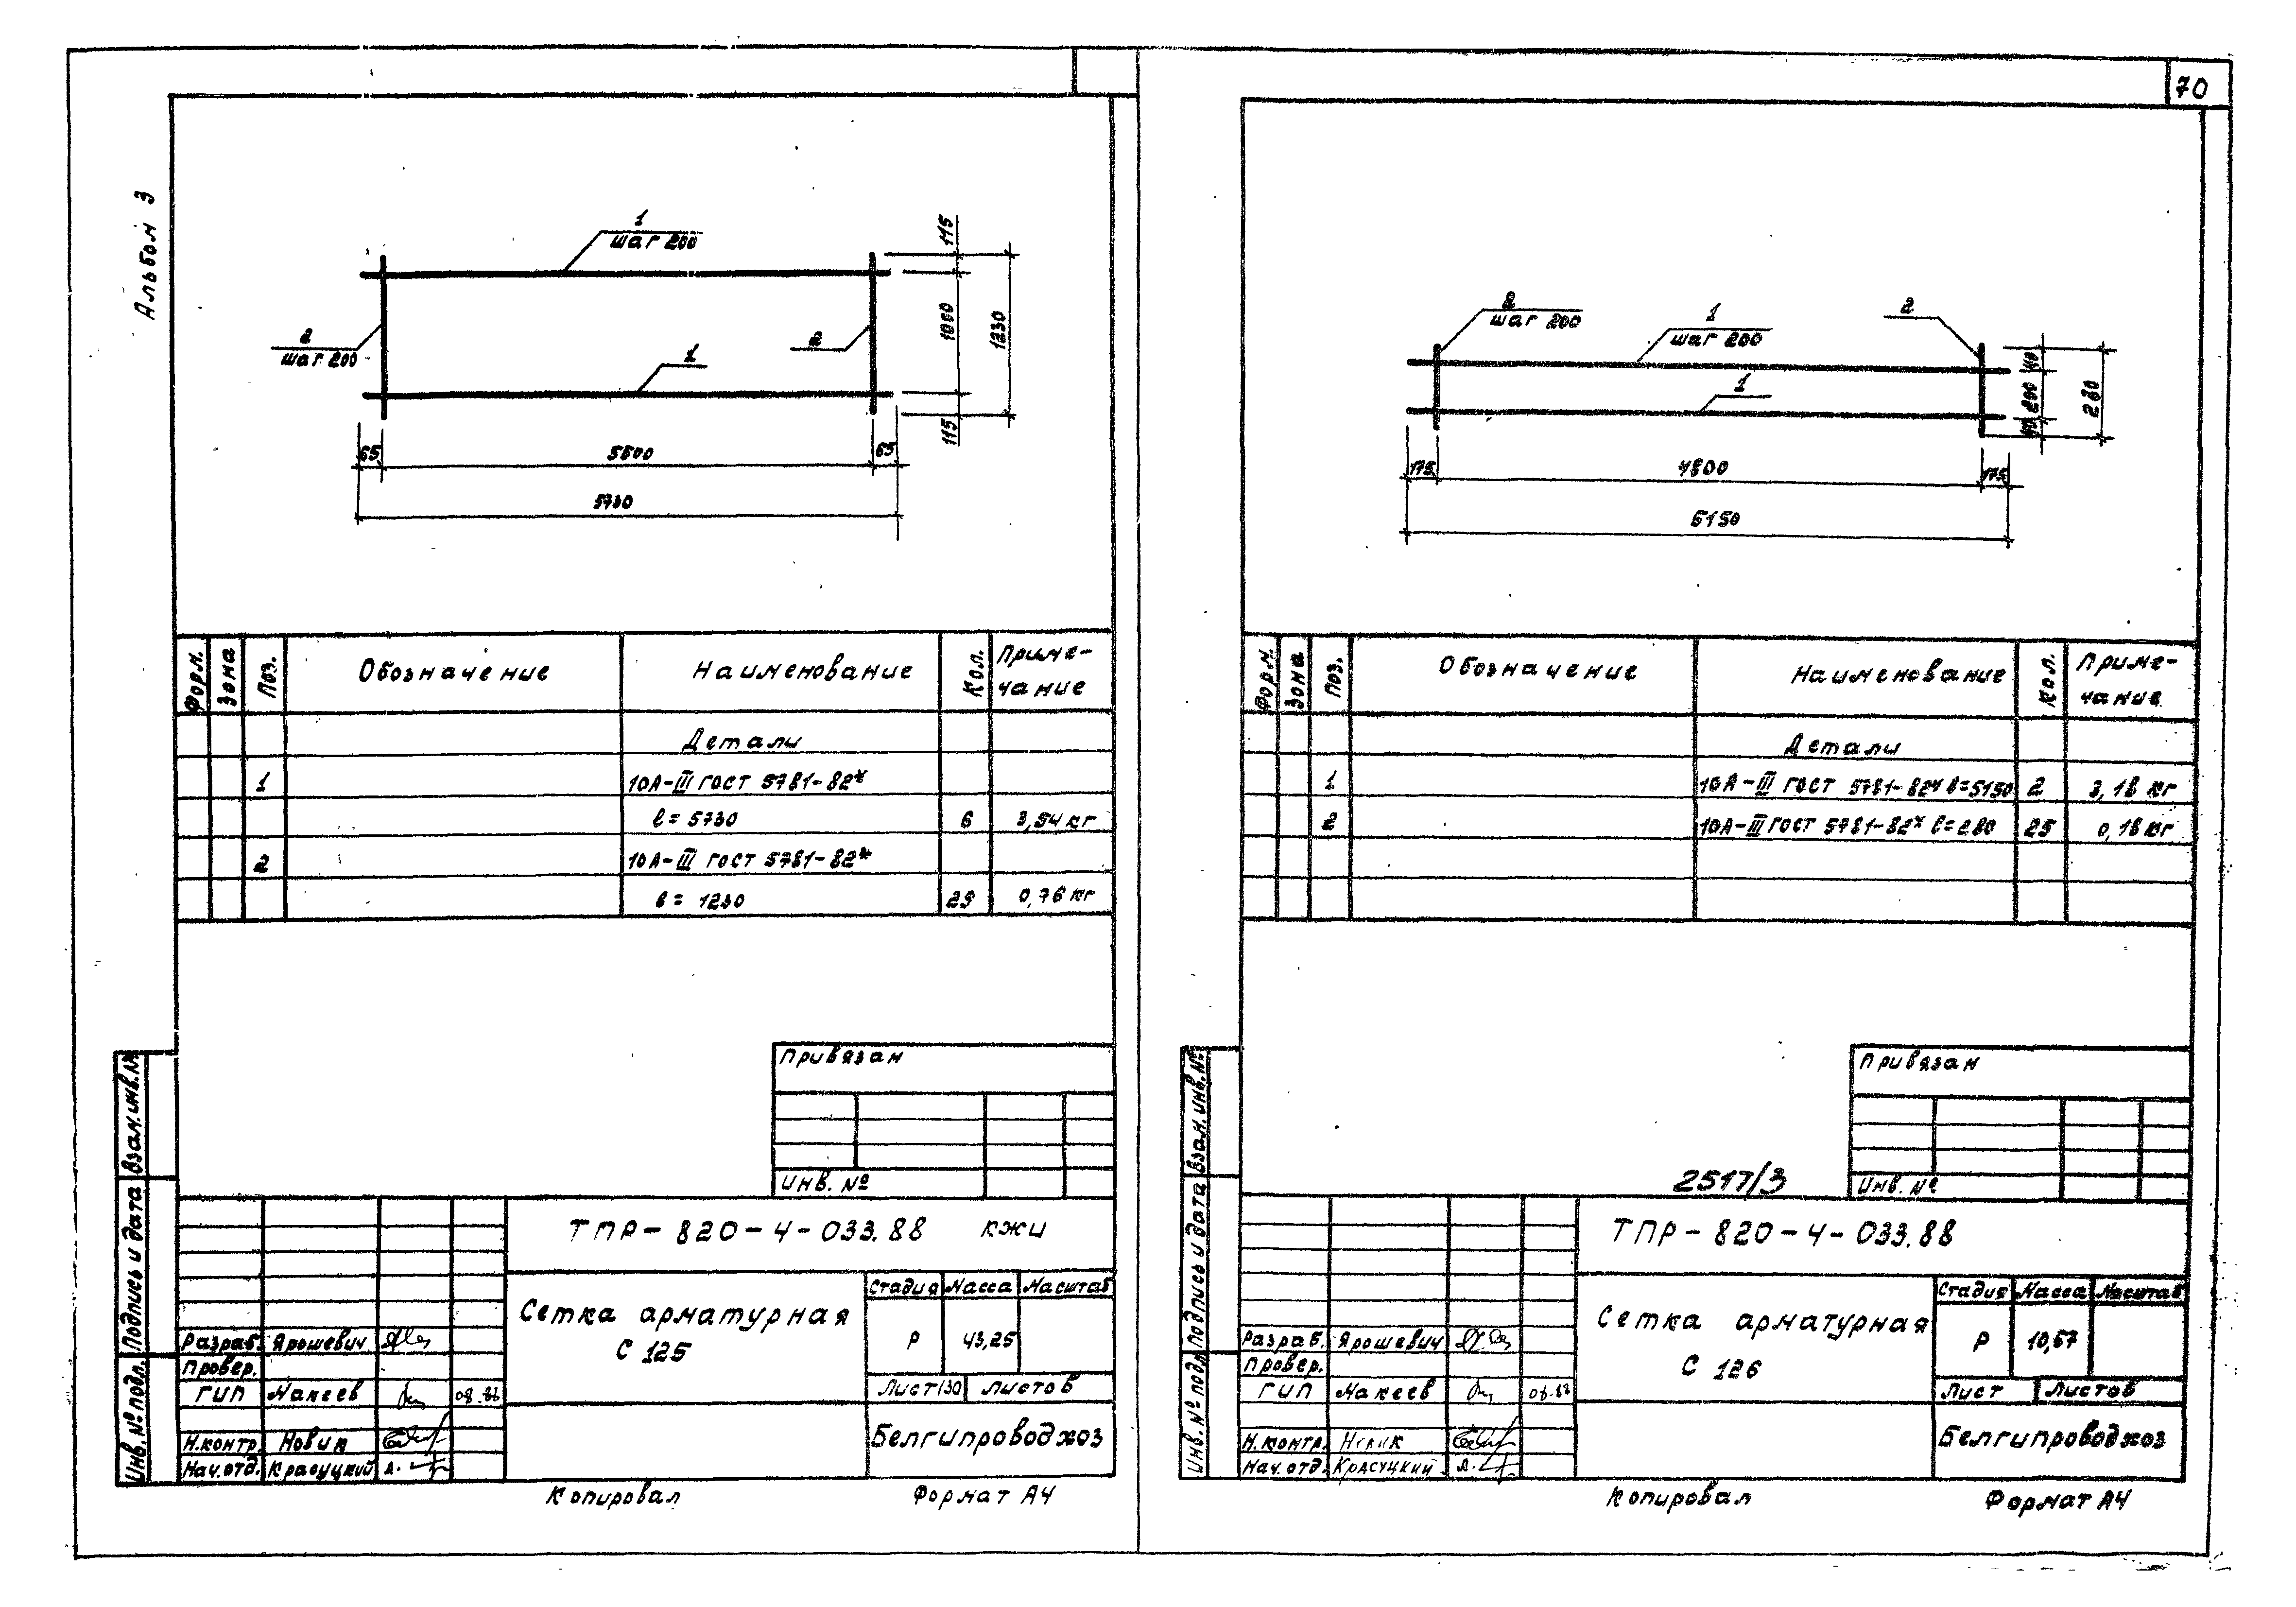 70
Альбом 3
1
шаг 200
2
шаг 200
1
2
115
1000
1230
115
65
5600
65
5730
Форм.
Зона
Поз.
Обозначение
Наименование
Кол.
Приме-
чание
Детали
1
10А-III ГОСТ 5781-82*
ℓ= 5730
6
3,54 кг
2
10А-III ГОСТ 5781-82*
ℓ= 1230
29
0,76 кг
Привязан
Инв. №
ТПР-820-4-033.88 КЖИ
Сетка арматурная
С 125
Стадия Масса Масштаб
Р 43,25
Лист 130 Листов
Белгипроводхоз
Разраб. Ярошевич
Провер.
ГИП Макеев
Н.контр. Новик
Нач.отд. Красуцкий
Инв. № подл. Подпись и дата Взам. инв. №
Копировал Формат А4
2
шаг 200
1
шаг 200
2
1
40
200
40
280
175
4800
175
5150
Форм.
Зона
Поз.
Обозначение
Наименование
Кол.
Приме-
чание
Детали
1 10А-III ГОСТ 5781-82* ℓ=5150 2 3,18 кг
2 10А-III ГОСТ 5781-82* ℓ=280 25 0,18 кг
Привязан
Инв. №
2517/3
ТПР-820-4-033.88
Сетка арматурная
С 126
Стадия Масса Масштаб
Р 10,67
Лист Листов
Белгипроводхоз
Разраб. Ярошевич
Провер.
ГИП Макеев
Н.контр. Новик
Нач.отд. Красуцкий
Инв. № подл. Подпись и дата Взам. инв. №
Копировал Формат А4